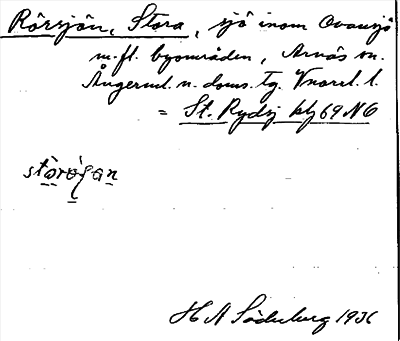 Rörsjön, Stora, sjö inom Ovansjö
m.fl. byområden, Arnäs sn.
Ångerml. n. doms. tg. Vnorrl. l.
= St. Rydsj blj 69 NO
storøɟan
H A Söderberg 1936